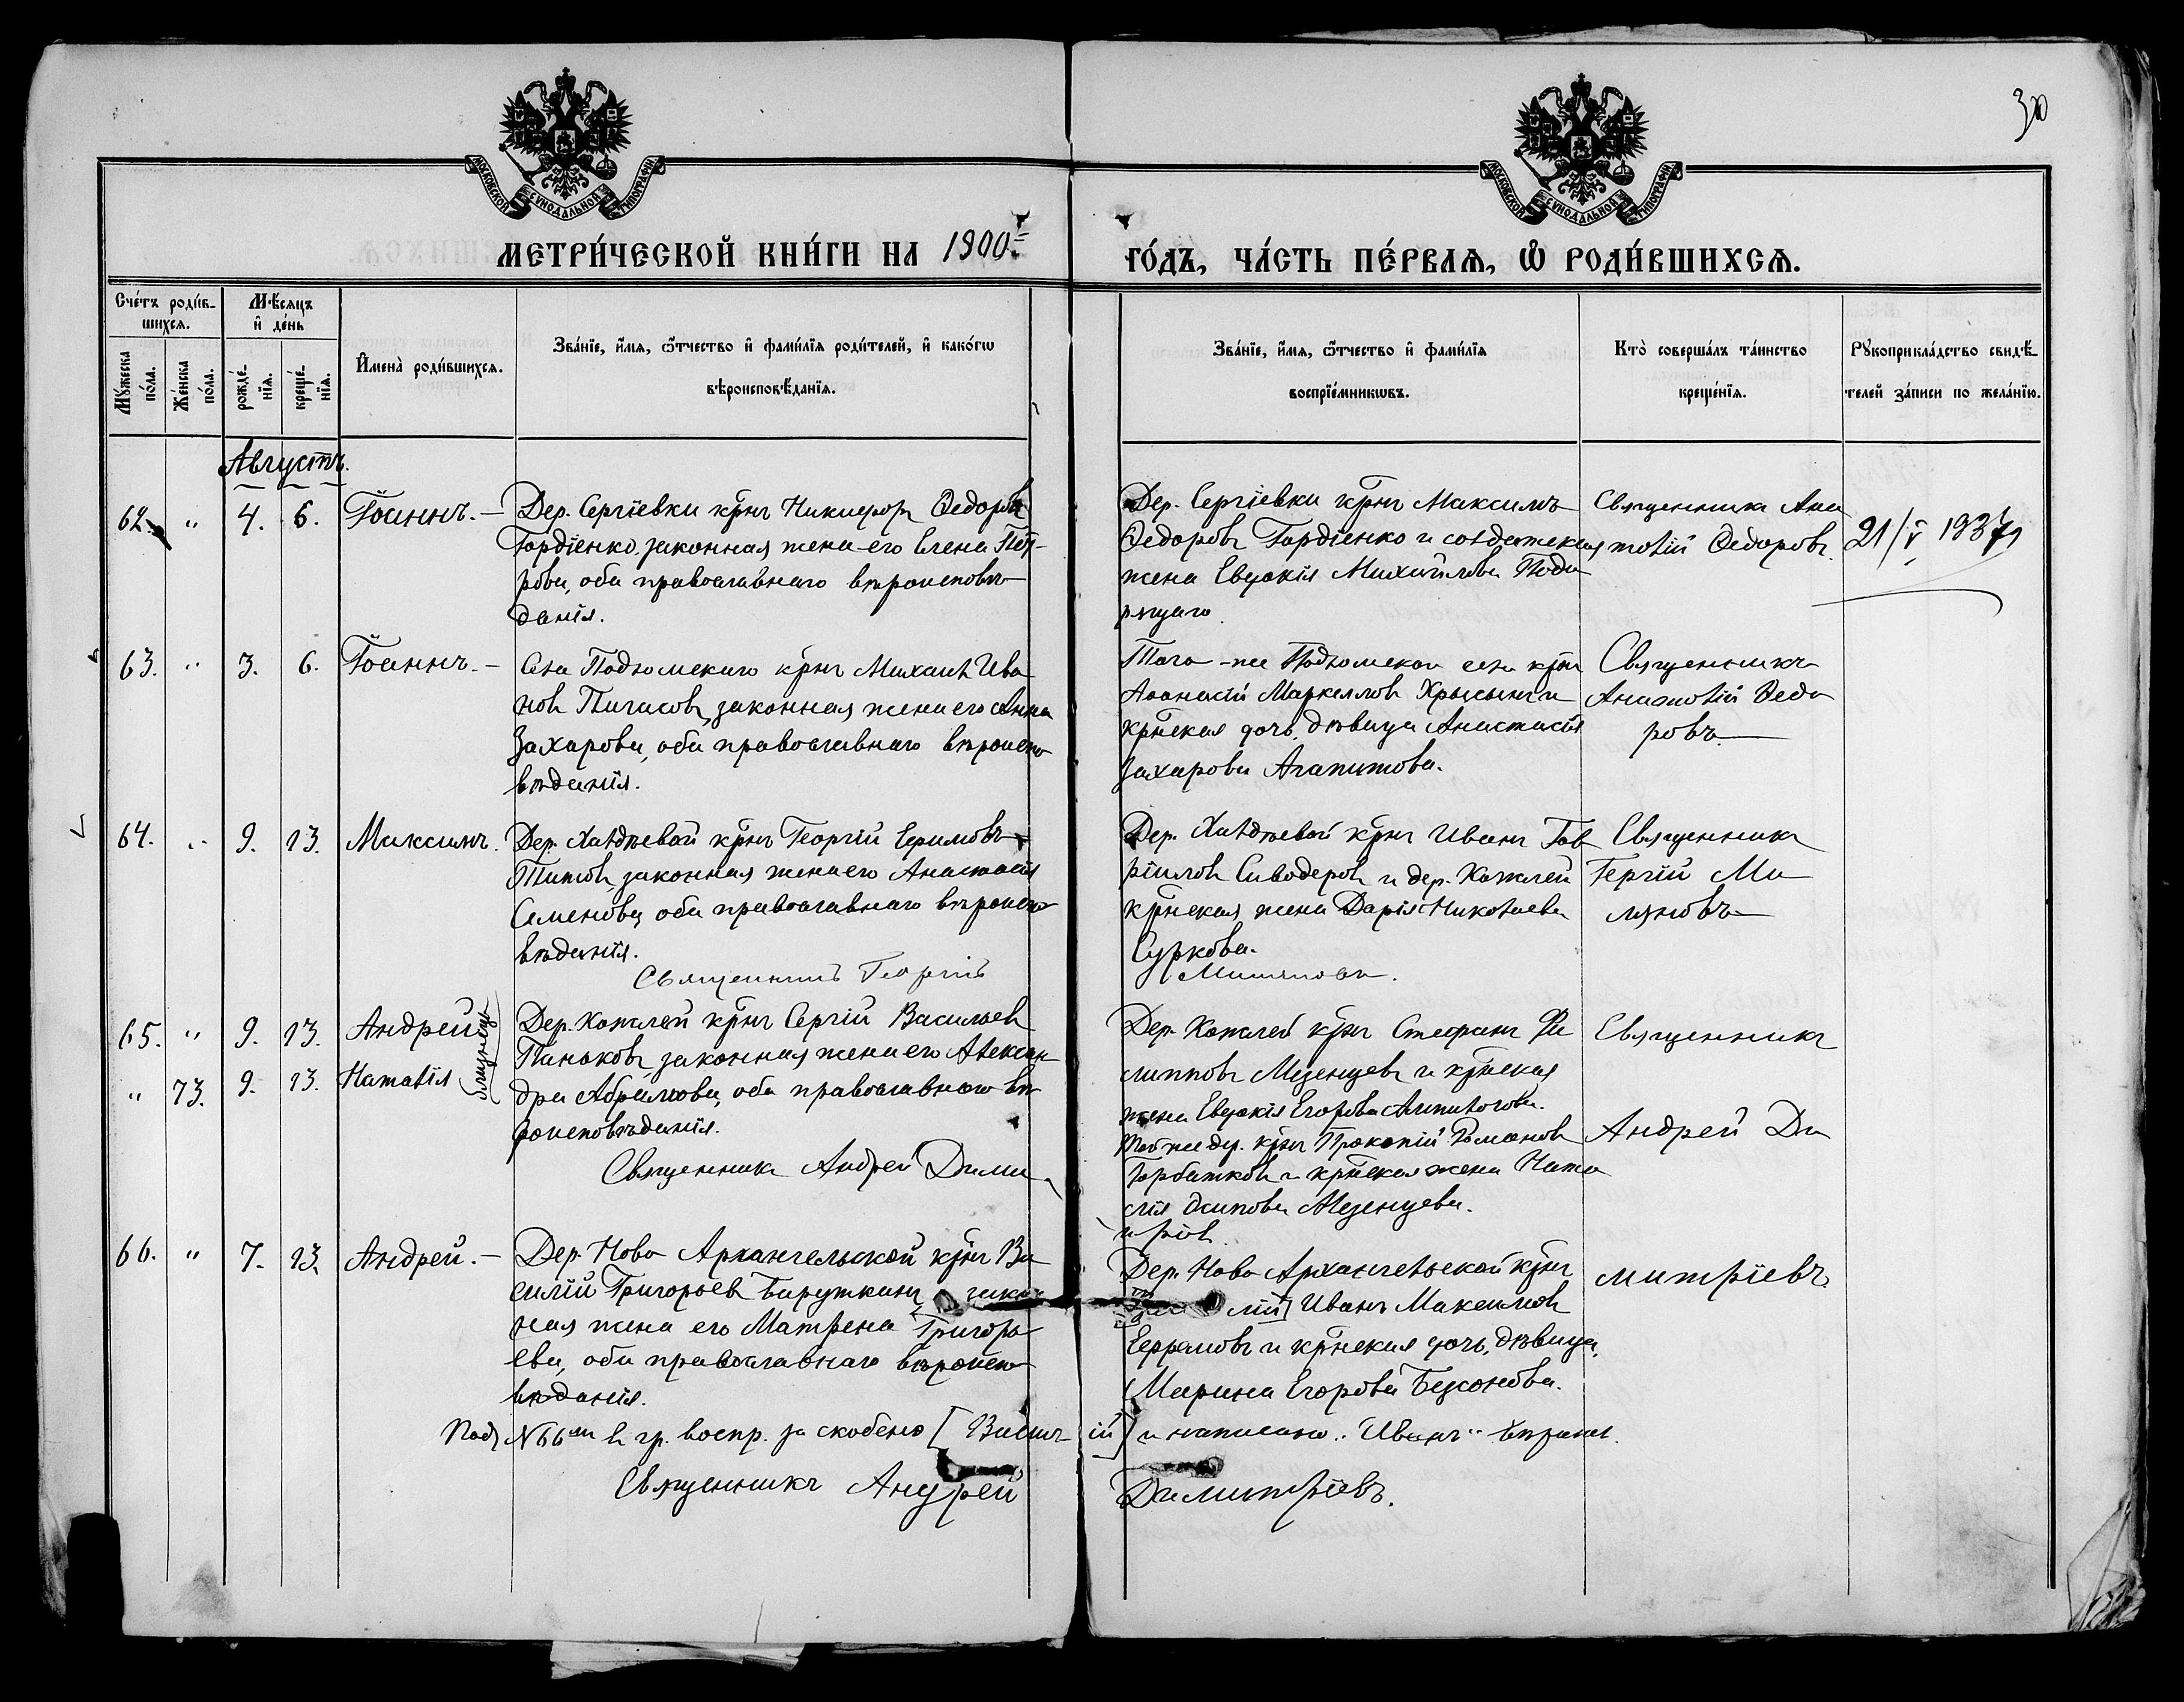 30
МОСКОВСКОЙ СѴНОДАЛЬНОЙ ТИПОГРАФІИ
МОСКОВСКОЙ СѴНОДАЛЬНОЙ ТИПОГРАФІИ
МЕТРИ́ЧЕСКОЙ КНИ́ГИ НА 1900=
ГО́ДЪ, ЧА́СТЬ ПЕ́РВАѦ, Ѡ҆ РОДИ́ВШИХСѦ.
Сче́тъ роди́в-
шихсѧ.
Мꙋ́жеска по́ла.
Же́нска по́ла.
Мѣ́сѧцъ
и҆ де́нь
рожде́-
нїѧ.
креще́-
нїѧ.
И҆мена̀ роди́вшихсѧ.
Зва́нїе, и҆́мѧ, ѻ҆́тчество и҆ фами́лїѧ роди́телей, и҆ како́гѡ
вѣроисповѣ́данїѧ.
Зва́нїе, и҆́мѧ, ѻ҆́тчество и҆ фами́лїѧ
воспрїе́мникѡвъ.
Кто̀ соверша́лъ та́инство
креще́нїѧ.
Рꙋкоприкла́дство свидѣ́-
телей за́писи по жела́нїю.
Августъ.
62. " 4. 6. Іоаннъ. —
Дер. Сергіевки крнъ Никифоръ Ѳедоровъ
Гордіенко, законная жена его Елена Пет-
рова, оба православнаго вѣроисповѣ-
данія.
Дер. Сергіевки крнъ Максимъ
Ѳедоровъ Гордіенко и солдатская
жена Евдокія Михайлова Подо
рящаго.
Священникъ Ана
толій Ѳедоровъ.
21/V 1937 г
63. " 3. 6. Іоаннъ. —
Села Подломскаго крнъ Михаилъ Ива
новъ Пигасовъ, законная жена его Анна
Захарова, оба православнаго вѣроиспо
вѣданія.
Того-же Подломскаго села крнъ
Аѳанасій Маркелловъ Хрысынъ и
крнская дочь, дѣвица Анастасія
Захарова Агапитова.
Священникъ
Анатолій Ѳедо
ровъ
64. " 9. 13. Максимъ.
Дер. Халдѣевой крнъ Георгій Ефимовъ
Титовъ, законная жена его Анастасія
Семенова, оба православнаго вѣроиспо
вѣданія.
Священникъ Георгій
Дер. Халдѣевой крнъ Иванъ Гав
ріиловъ Сиводеровъ и дер. Кожлей
крнская жена Дарія Николаева
Суркова.
Миляновъ.
Священникъ
Гергій Ми
ляновъ
65. " 9. 13. Андрей
" 73. 9. 13. Наталія
близнецы
Дер. Кожлей крнъ Сергій Васильевъ
Паньковъ, законная жена его Алексан
дра Абрамова, оба православнаго вѣ
роисповѣданія.
Священникъ Андрей Дими
Дер. Кожлей крнъ Стефанъ Фи
липповъ Мезенцевъ и крнская
жена Евдокія Егорова
Той же дер. крнъ Прокопій Романовъ
Горбатковъ и крнская жена Ната
лія Осипова Мезенцева.
тріевъ.
Священникъ
Андрей Ди
митріевъ
66. " 7. 13. Андрей. —
Дер. Ново Архангельской крнъ Ва
силій Григорьевъ Бируткинъ закон
ная жена его Матрена Григорь
ева, оба православнаго вѣроиспо
вѣданія.
Дер. Ново Архангельской крнъ
[Василій] Иванъ Максимовъ
Ефремовъ и крнская дочь, дѣвица,
Марина Егорова Безсонова.
Подъ N 66мъ въ гр. воспр. за скобено [Василій] и написано "Иванъ" вѣрить.
Священникъ Андрей Димитріевъ.